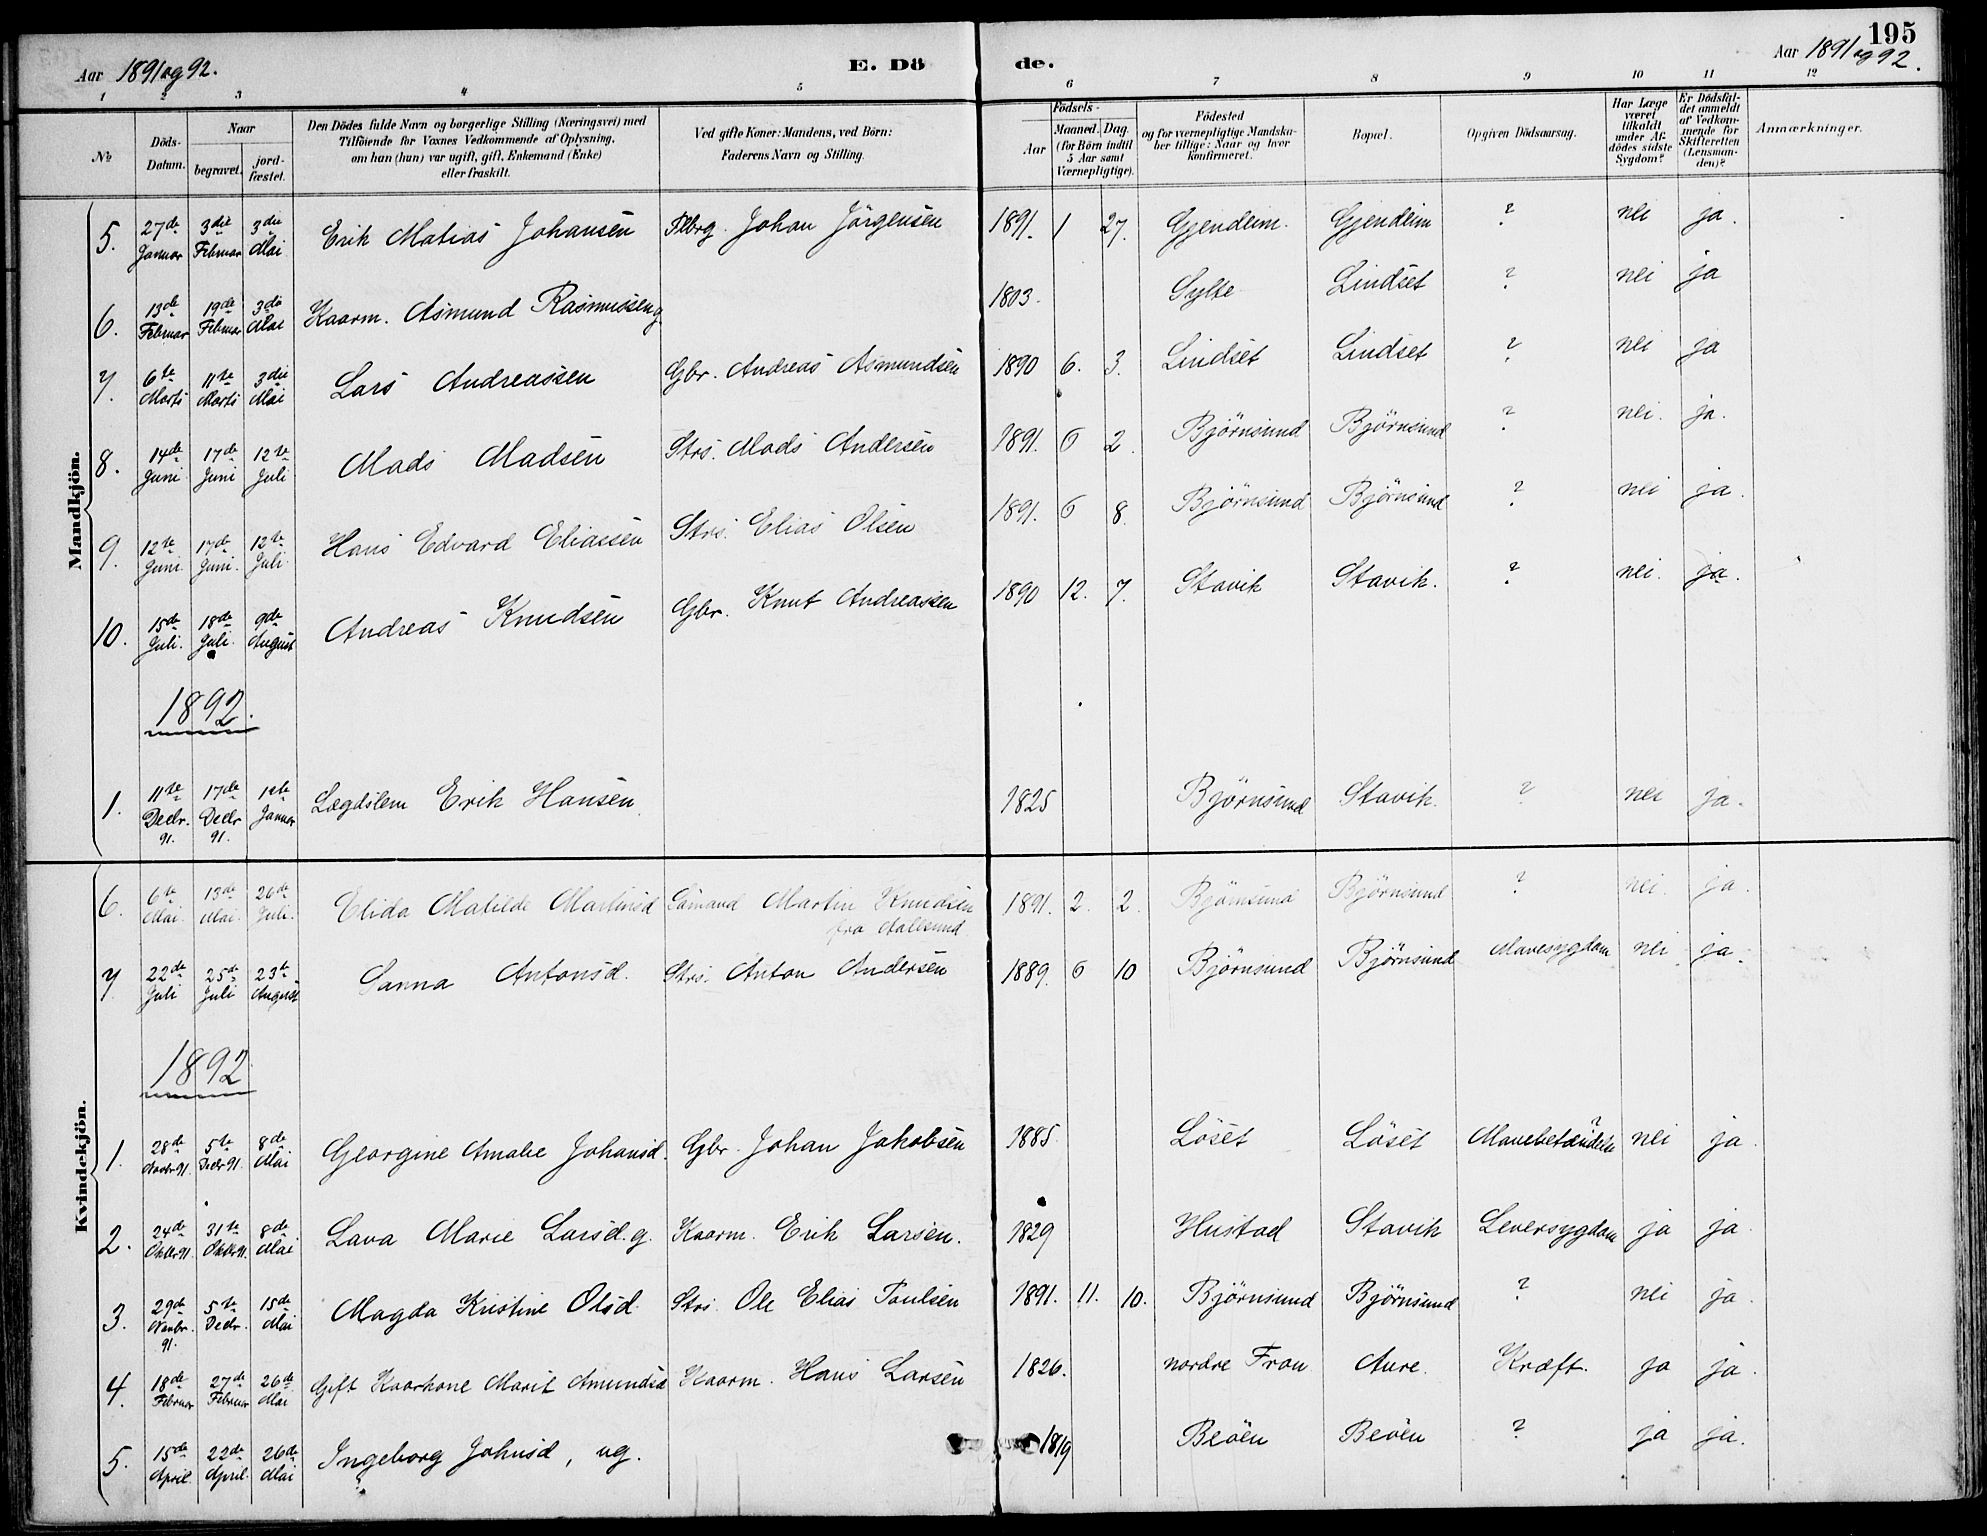 195
Aar 1891 og 92. E. Dö de. Aar 1891 og 92.
1 2 3 4 5 6 7 8 9 10 11 12
№
Döds-Datum.
Naar
begravet.
jord-fæstet.
Den Dödes fulde Navn og borgerlige Stilling (Næringsvei) med
Tilföiende for Voxnes Vedkommende af Oplysning,
om han (hun) var ugift, gift, Enkemand (Enke)
eller fraskilt.
Ved gifte Koner: Mandens, ved Börn:
Faderens Navn og Stilling.
Födsels-
Aar
Maaned. Dag.
(for Börn indtil
5 Aar samt
Værnepligtige).
Födested
og for værnepligtige Mandska-
ber tillige: Naar og hvor
konfirmeret.
Bopæl.
Opgiven Dödsaarsag.
Har Læge
været
tilkaldt
under Af-
dödes sidste
Sygdom?
Er Dödsfal-
det anmeldt
af Vedkom-
mende for
Skifteretten
(Lensman-
den)?
Anmærkninger.
Mandkjön.
5. 27de Januar 3die Februar 3die Mai Erik Matias Johansen Johan Jörgensen 1891. 1 27. Gjendem. Gjendem ? nei ja.
6. 13de Februar 19de Februar 3die Mai Kaarm. Asmund Rasmussen g 1803. Sylte Lindset ? nei ja
7. 6te Marts 11te Marts 3die Mai Lars Andreassen Gbr. Andreas Asmundsen 1890 6. 3. Lindset Lindset ? nei ja
8. 14de Juni 17de Juni 12te Juli Mads Madsen Strs. Mads Andersen 1891. 6 2. Björnsund Björnsund ? nei. ja.
9. 12te Juni. 17de Juni. 12te Juli. Hans Edvard Eliassen Strs. Elias Olsen 1891. 6 8. Björnsund Björnsund ? nei ja.
10. 15de Juli. 18de Juli. 9de August Andreas Knudsen Gbr. Knut Andreassen 1890 12. 7. Stavik Stavik. ? nei. ja.
1892.
1. 11te Decbr. 91. 17de Decbr 91. Januar Lægdslem Erik Hansen 1825 Björnsund Stavik. ? nei ja.
Kvindekjön.
6. 6te Mai. 13de Mai. 26de Juli. Elida Matilde Martinsd Sømand Martin Knudsen
fra Aalesund. 1891. 2. 2. Björnsund Björnsund ? nei. ja.
7 22de Juli 25de Juli 23de August Sanna Antonsd. Strs. Anton Andersen 1889. 6 10 Björnsund Björnsund Mavesygdom nei ja.
1892
1. 28de Novbr 91. 5te Decbr 91. 8de Mai Georgine Amalie Johansd. Gbr. Johan Jakobsen 1885. Löset Löset Mavebetændelse ? nei ja.
2. 24de Oktbr 91. 31te Oktbr 91. 8de Mai Lava Marie Larsd. g. Kaarm. Erik Larsen. 1829 Hustad Stavik Leversygdom ja ja.
3. 29de Novbr. 91. 5te Decbr. 15de Mai Magda Kristine Olsd. Strs. Ole Elias Paulsen 1891. 11. 10. Björnsund Björnsund ? nei ja.
4. 18de Februar 27de Februar 26de Mai Gift Kaarkone Marit Amundsd Kaarm. Hans Larsen 1826. nordre Fron Aure. Kræft. ja ja.
5. 15de April. 22de April. 26de Mai Ingeborg Johnsd, ug. 1819 Beöen Beöen ? ja ja.